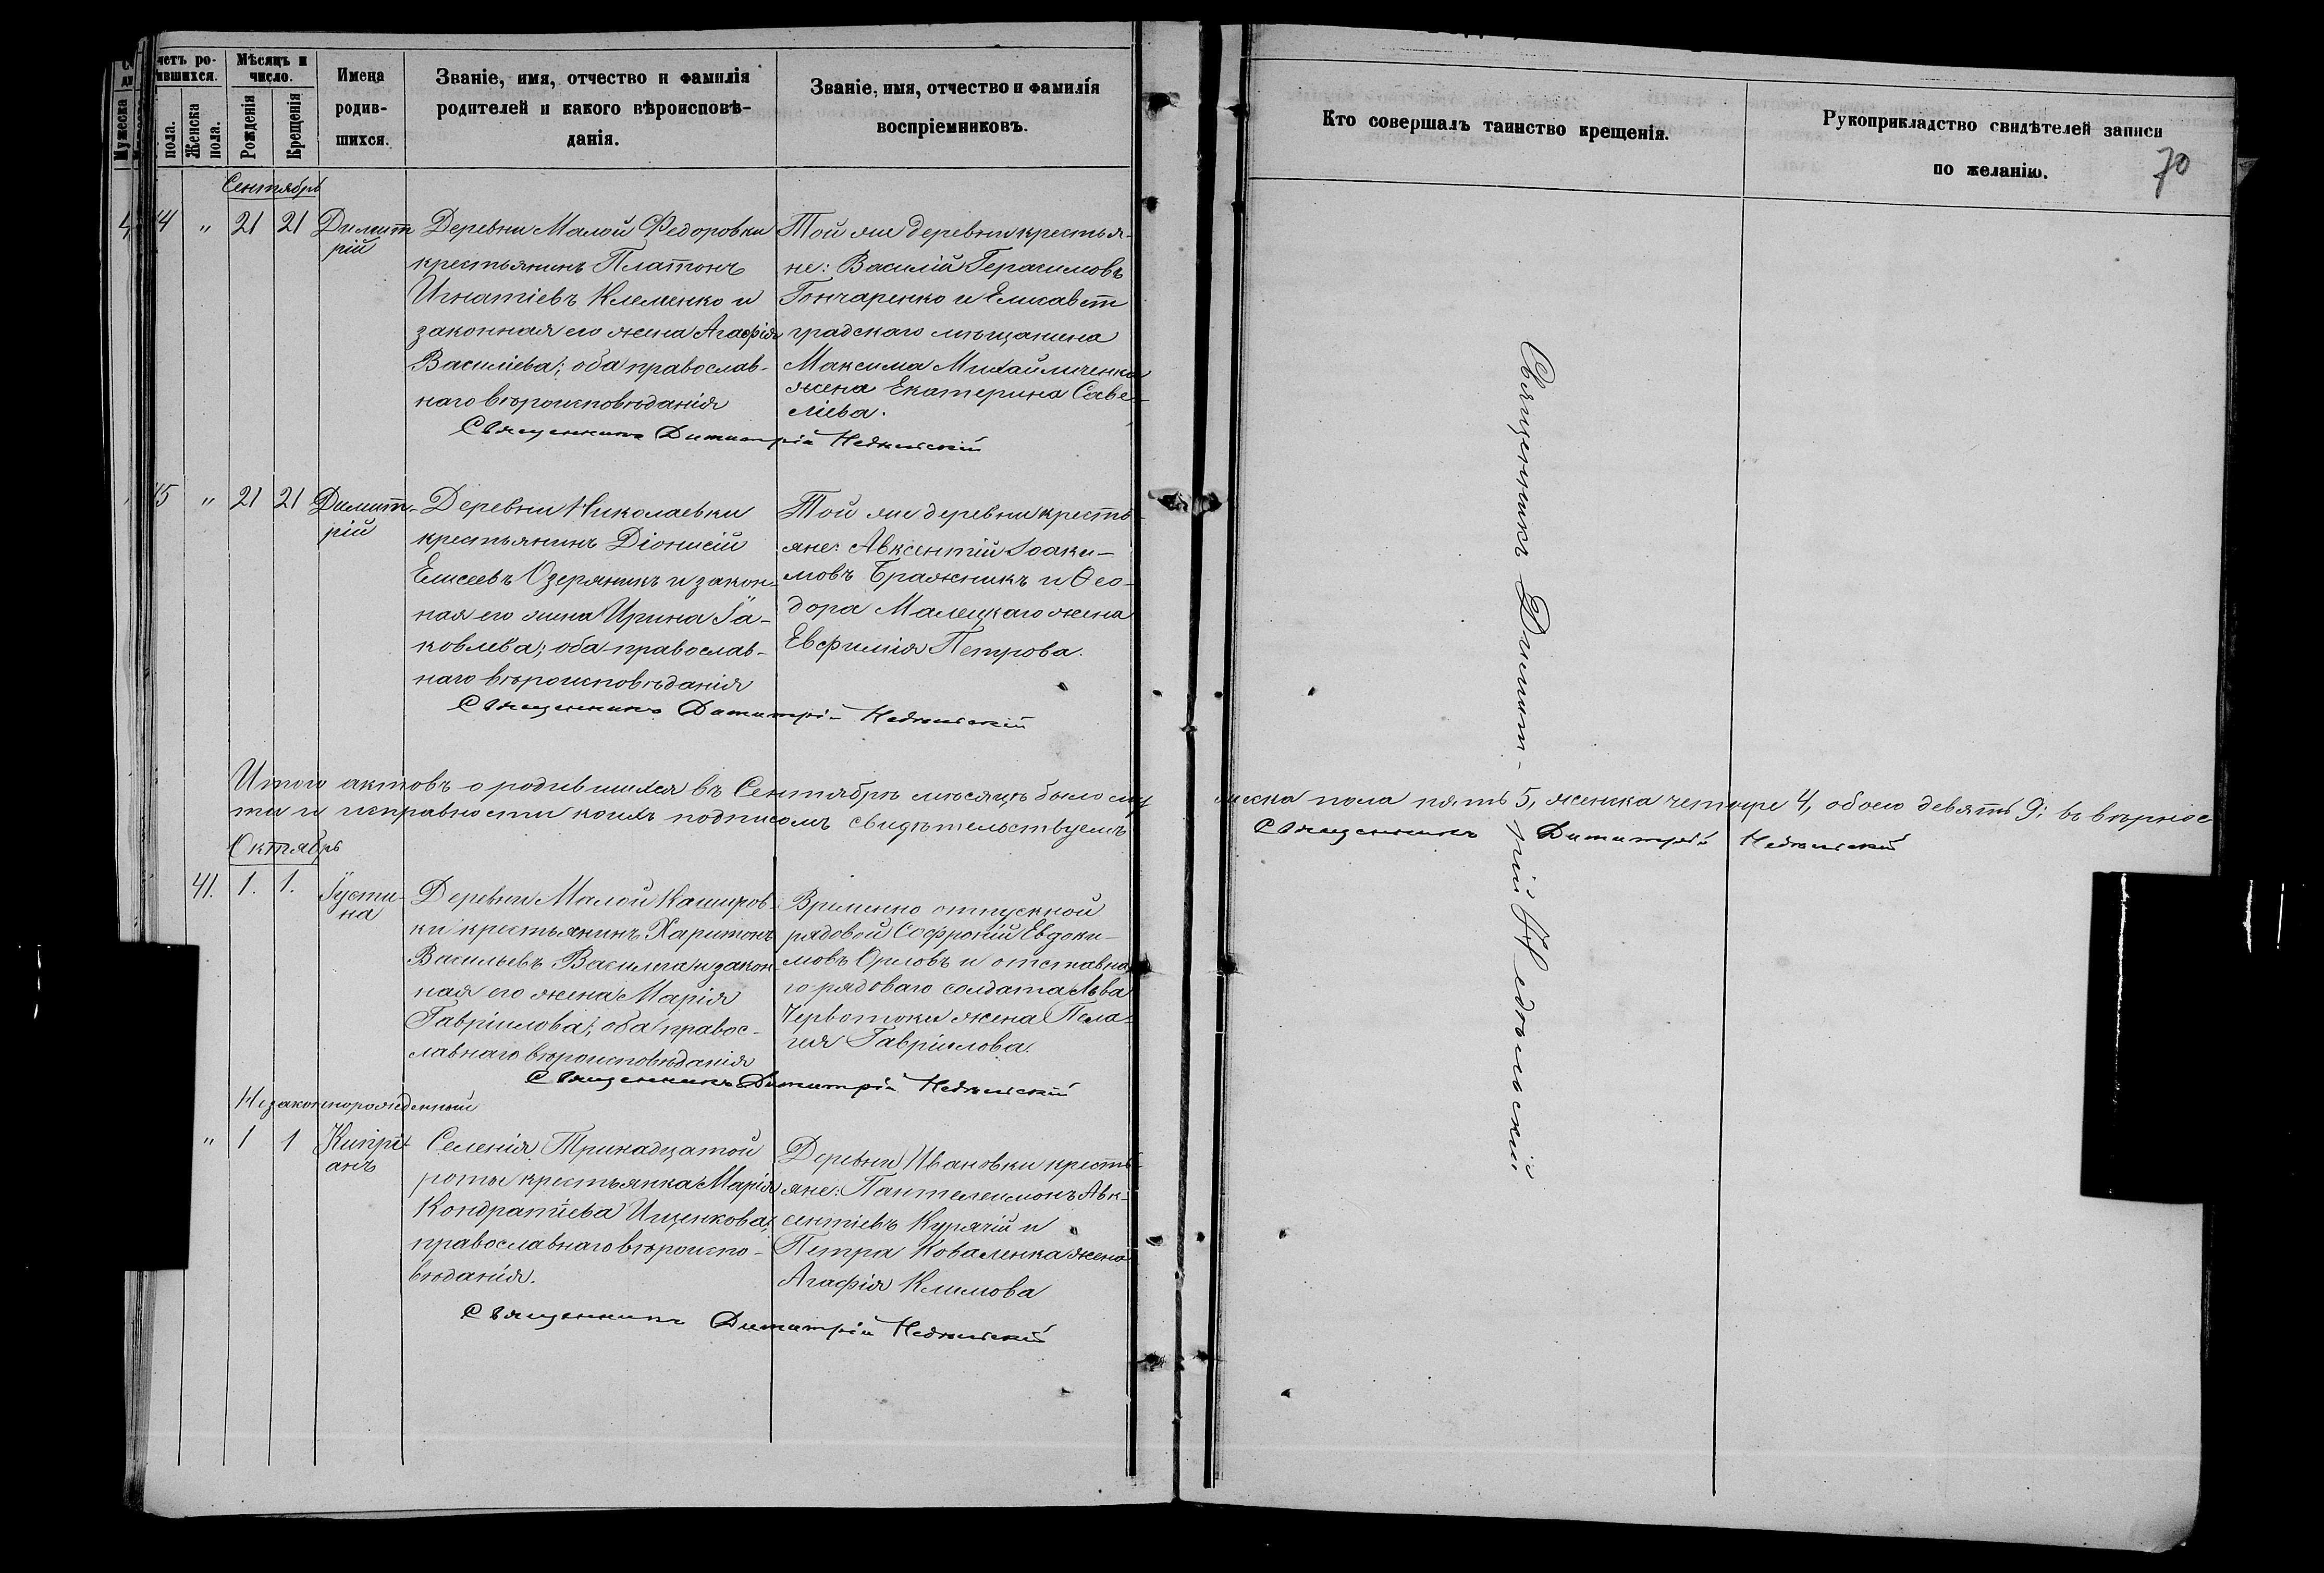 четъ ро-
ившихся.
Мѣсяцъ и
число.
Мужеска
пола.
Женска
пола.
Рожденія
Крещенія
Имена
родив-
шихся.
Званіе, имя, отчество и фамилія
родителей и какого вѣроисповѣ-
данія.
Званіе, имя, отчество и фамилія
воспріемниковъ.
Кто совершалъ таинство крещенія.
Рукоприкладство свидѣтелей записи
по желанію.
70
Сентябрь
4 " 21 21
Димит
рій
Деревни Малой Федоровки
крестьянинъ Платонъ
Игнатіевъ Клеменко и
законная его жена Агафія
Василіева; оба православ-
наго вѣроисповѣданія
Той же деревни крестья-
не: Василій Герасимовъ
Гончаренко и Елисавет
градскаго мѣщанина
Максима Михайличенка
жена Екатерина Саве-
ліева.
Священникъ Димитрій Недѣльскій
5 " 21 21
Димит-
рій
Деревни Николаевки
крестьянинъ Діонисій
Елисеевъ Озеряникъ и закон-
ная его жена Ирина Іа-
ковлева; оба православ-
наго вѣроисповѣданія
Той же деревни кресть-
яне: Авксентій Іоаки-
мовъ Бражникъ и Ѳео-
дора Малецкаго жена
Евфимія Петрова.
Священникъ Димитрій Недѣльскій
Итого актовъ о родившихся въ Сентябрѣ мѣсяцѣ было му жеска пола пять 5, женска четыре 4, обоего девять 9; въ вѣрнос
ти и исправности коихъ подписомъ свидѣтельствуемъ
Священникъ Димитрій Недѣльскій
Октябрь
41. 1. 1.
Іусти-
на
Деревни Малой Каширов-
ки крестьянинъ Харитонъ
Васильевъ Василега и закон-
ная его жена Марія
Гавріилова; оба правос-
лавнаго вѣроисповѣданія
Временно отпускной
рядовой Софроній Евдоки-
мовъ Орловъ и отставна
го рядоваго солдата Льва
Червотоки жена Пела-
гія Гавріилова.
Священникъ Димитрій Недѣльскій
Незаконнорожденный
" 1 1
Кипрі-
анъ
Селенія Тринадцатой
роты крестьянка Марія
Кондратіева Ищенкова,
православнаго вѣроиспо-
вѣданія.
Деревни Ивановки кресть-
яне: Пантелеимонъ Авк-
сентіевъ Курячій и
Петра Коваленка жена
Агафія Климова
Священникъ Димитрій Недѣльскій
Священникъ Димит-
рій Недѣльскій